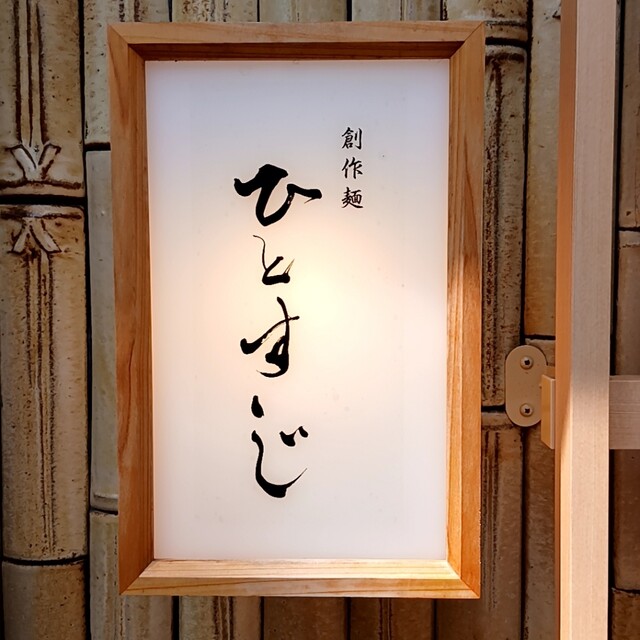 創作麺
ひとすじ